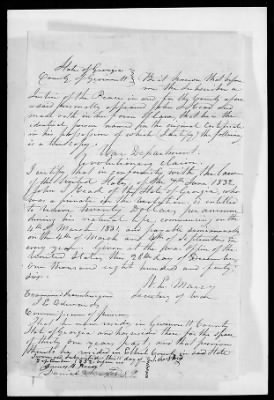 State of Georgia
County of Gwinnett } Be it known that before
me the subscriber a
Justice of the Peace in and for the County afore
said personally appeared John S. Head who
made oath in due form of Law, that he is the
identical person named in the original Certificate
in his possession of which I Certify the following
is a true Copy.
War Department,
Revolutionary Claim.
I certify that in conformity with the Law
of the United States, of the 7th June 1832.
John S. Head of the State of Georgia, who
was a private in the Revolution, is entitled
to receive Twenty Dollars per annum
during his natural life, commencing on the
4th of March 1831, and payable semiannually
on the 4th of March and 4th of September in
every year. Given at the War Office of the
United States this 28th day of December
One thousand eight hundred and forty
six.
W. L. Marcy
Secretary of War
Examined &
J. L. Edwards
Commissioner of Pensions.
That he now resides in Gwinnett County
State of Georgia and has resided there for the space
of thirty one years past; and that previous
thereto he resided in Elbert County in said State